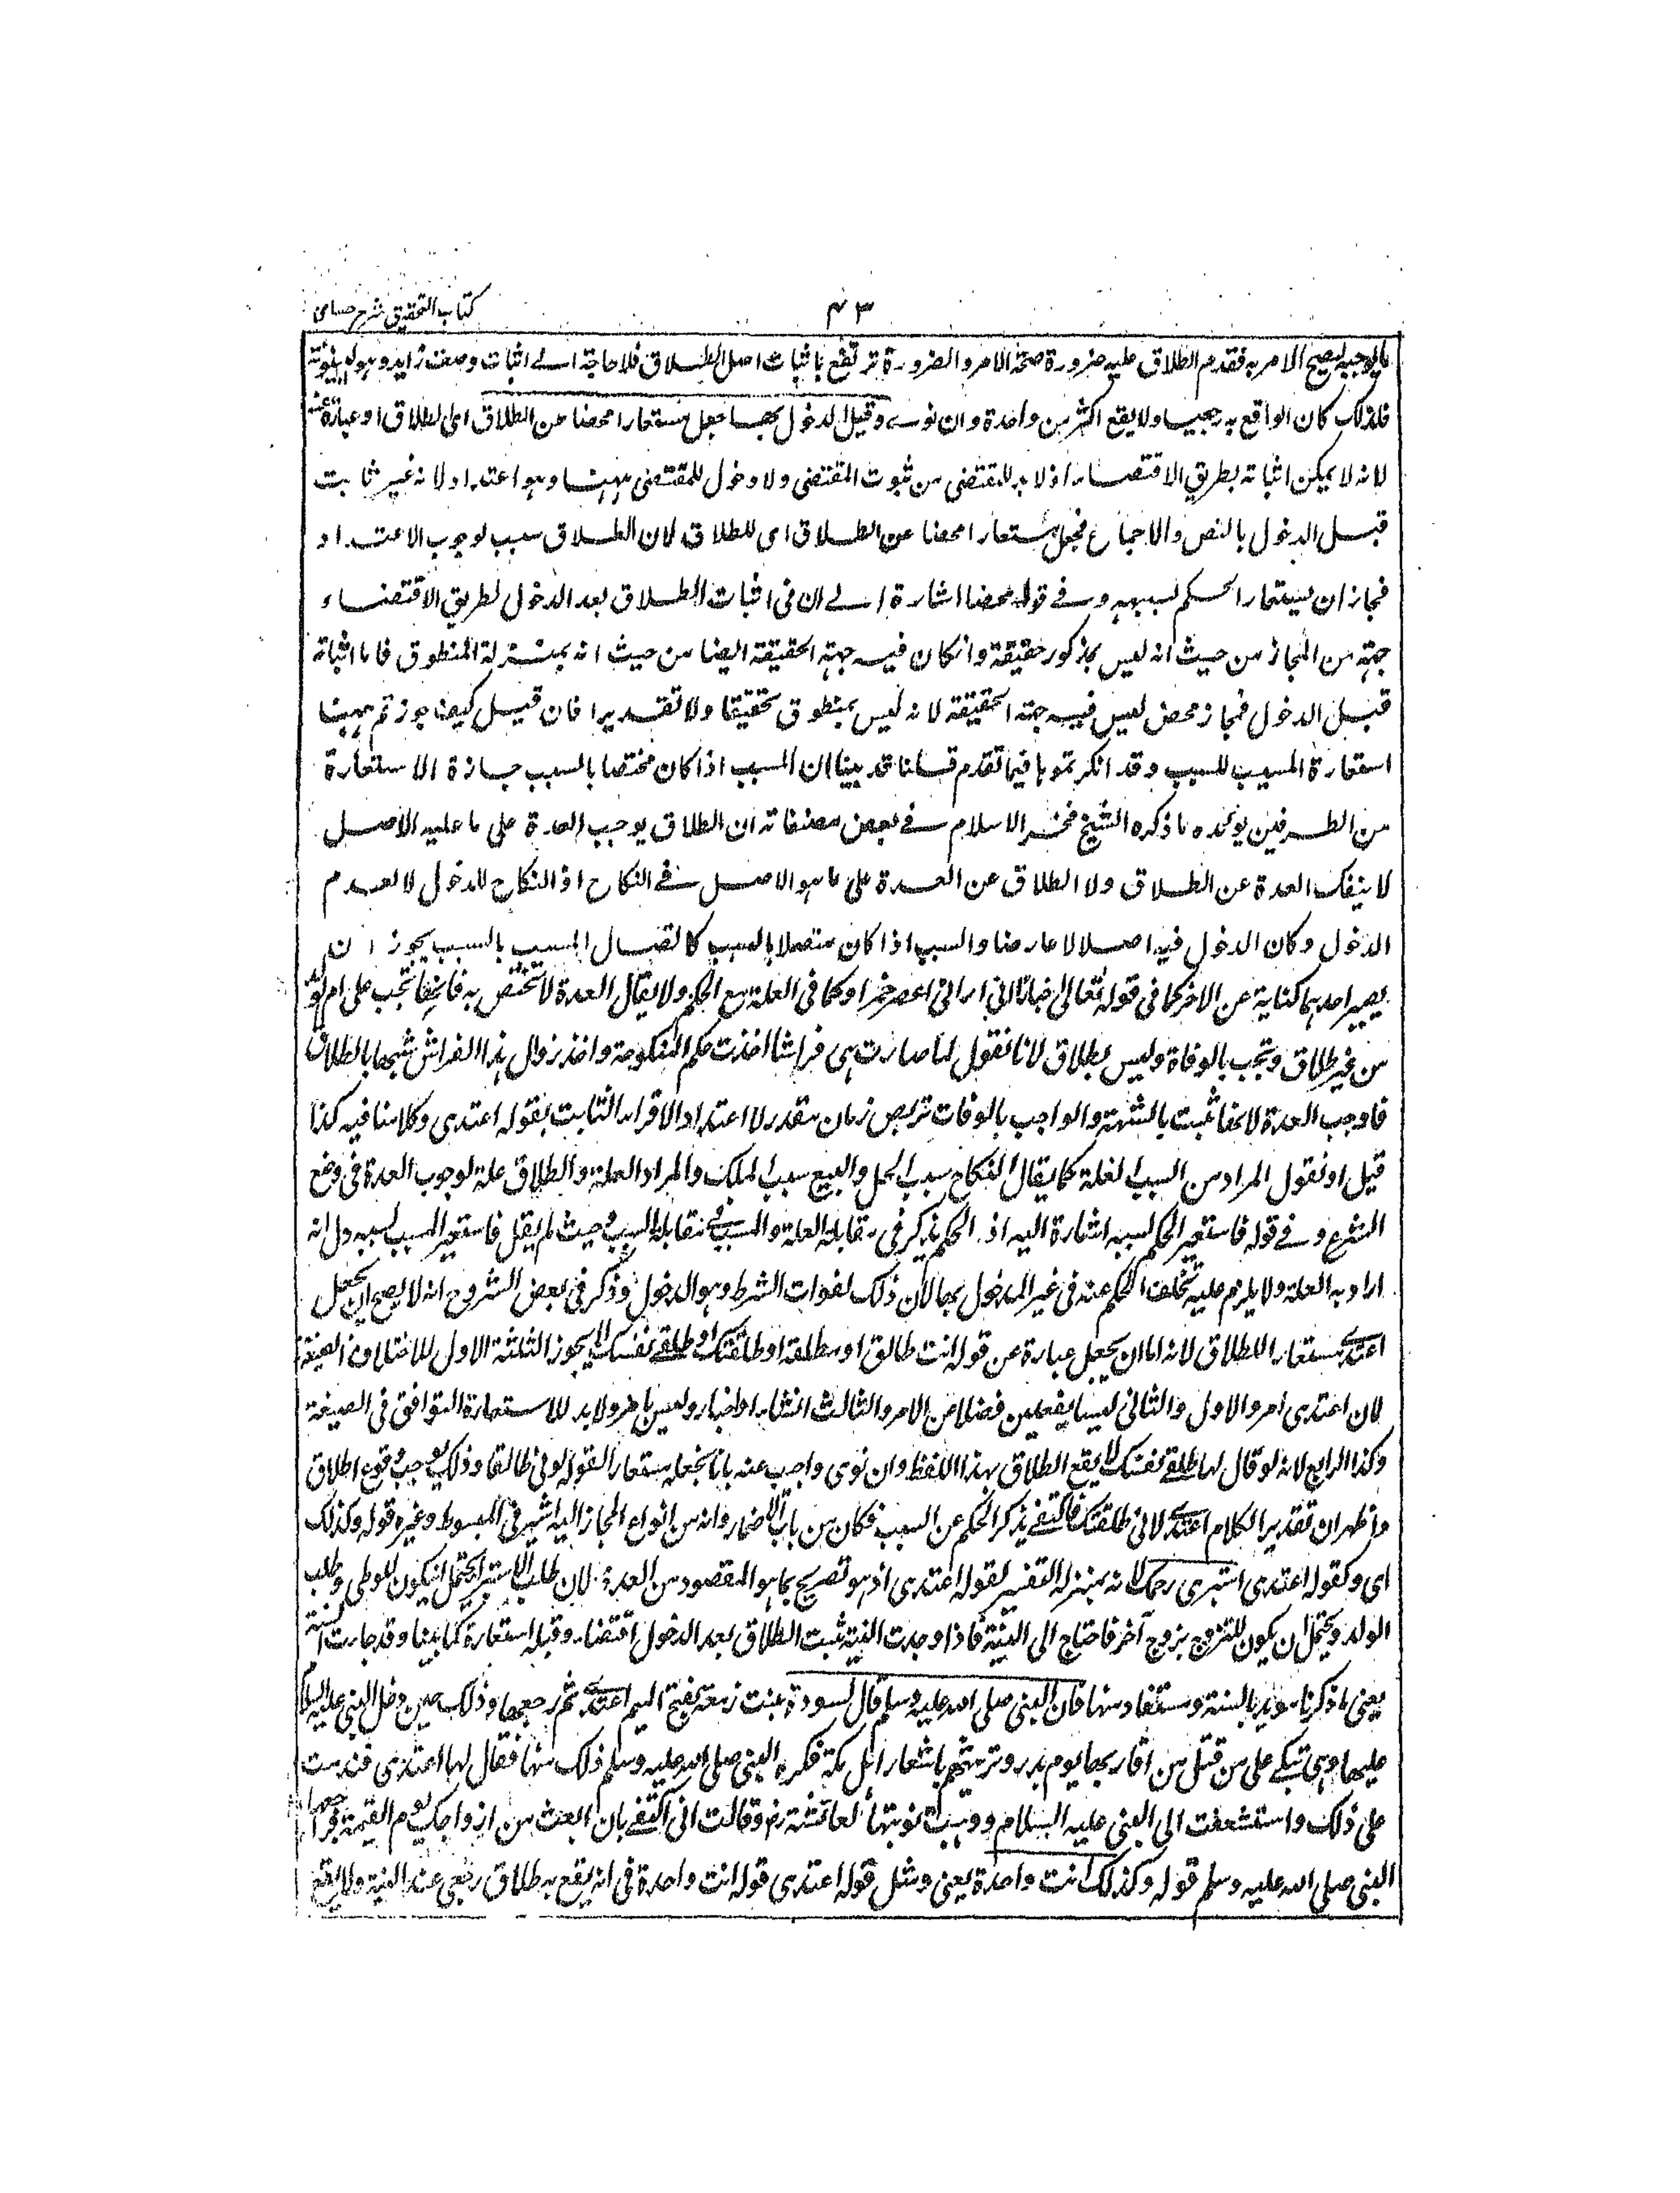 كتاب التحقيق شرح حسامى
٤٣
ما يوجبه ليصح الامر به فقدم الطلاق عليه ضرورة صحة الامر والضرورة ترتفع باثبات اصل الطلاق فلا حاجة الے اثبات وصف زايد وهو البينونة
فلذلك كان الواقع به رجعيا ولا يقع اكثر من واحدة وان نوے وقبل الدخول بها جعل مستعارا محضا عن الطلاق اى للطلاق او عبارة عنه
لانه لا يمكن اثباته بطريق الاقتضاء اذ لا بد للمقتضى من ثبوت المقتضى ولا دخول للمقتضى ههنا وهو اعتداد لانه غير ثابت
قبل الدخول بالنص والاجماع فجعل مستعارا محضا عن الطلاق اى للطلاق لان الطلاق سبب لوجوب الاعتداد
فجاز ان يستعار الحكم لسببه وفے قوله محضا اشارة الے ان فى اثبات الطلاق بعد الدخول بطريق الاقتضاء
جهة من المجاز من حيث انه ليس بمذكور حقيقة وانكان فيه جهة الحقيقة ايضا من حيث انه بمنزلة المنطوق فاما اثباته
قبل الدخول فمجاز محض ليس فيه جهة الحقيقة لانه ليس بمنطوق تحقيقا ولا تقديرا فان قيل كيف جوزتم ههنا
استعارة المسبب للسبب وقد انكرتموها فيما تقدم قلنا قد بينا ان المسبب اذا كان مختصا بالسبب جازة الاستعارة
من الطرفين يؤيده ما ذكره الشيخ فخر الاسلام فے بعض مصنفاته ان الطلاق يوجب العدة على ما عليه الاصل
لا ينفك العدة عن الطلاق ولا الطلاق عن العدة على ما هو الاصل فے النكاح اذ النكاح للدخول لا لعدم
الدخول وكان الدخول فيه اصلا لا عارضا والسبب اذا كان متصلا بالمسبب كاتصال المسبب بالسبب يجوز ان
يصير احدهما كناية عن الاخر كما فى قوله تعالى اخبارا انى ارانى اعصر خمرا وكما فى العلة مع الحكم ولا يقال العدة لا تختص به فانها تجب على ام الولد
من غير طلاق وتجب بالوفاة وليس بطلاق لانا نقول لما صارت هى فراشا اخذت حكم المنكوحة واخذ زوال هذا الفراش شبها بالطلاق
فاوجب العدة لانها تثبت بالشبهة والواجب بالوفات تربص زمان مقدر لا اعتداد الاقراء الثابت بقوله اعتدى وكلامنا فيه كذا
قيل او نقول المراد من السبب العلة كما يقال النكاح سبب الحل والبيع سبب الملك والمراد العلة والطلاق علة لوجوب العدة فى وضع
الشرع وفے قوله فاستعير الحكم لسببه اشارة اليه اذ الحكم يذكر فى مقابلة العلة والمسبب فے مقابلة السبب حيث لم يقل فاستعير المسبب لسببه دل انه
اراد به العلة ولا يلزم عليه تخلف الحكم عنه فى غير المدخول بها لان ذلك لفوات الشرط وهو الدخول وذكر فى بعض الشروح انه لا يصح ان يجعل
اعتدے مستعارا للطلاق لانه اما ان يجعل عبارة عن قوله انت طالق او مطلقة او طلقتك او طلقے نفسك لا يجوز الثلثة الاول للاختلاف الصيغة
لان اعتدى امر والاول والثانى ليسا بفعلين فضلا عن الامر والثالث انشاء او اخبار وليس بامر ولا بد للاستعارة التوافق فى الصيغة
وكذا الرابع لانه لو قال لها طلقے نفسك لا يقع الطلاق بهذا اللفظ وان نوى واجيب عنه بانا نجعله مستعارا لقوله كونى طالقا وذلك يوجب وقوع الطلاق
واظهر ان تقدير الكلام اعتدے لانى طلقتك فاكتفے بذكر الحكم عن السبب فكان من باب الاضمار وانه من انواع المجاز اليه اشير فى المبسوط وغيره قوله وكذلك
اى وكقوله اعتدى استبرى رحمك لانه بمنزلة التفسير لقوله اعتدى اذ هو تصريح بما هو المقصود من العدة لان طلب الاستبراء يحتمل ان يكون للوطى وطلب
الولد ويحتمل ان يكون للتزوج بزوج آخر فاحتاج الى النية فاذا وجدت النية ثبت الطلاق بعد الدخول اقتضاء وقبله استعارة كما بينا وقد جاءت السنة
يعنى ما ذكرنا مويد بالسنة ومستفاد منها فان النبى صلى الله عليه وسلم قال لسودة بنت زمعة بفتح الميم اعتدے ثم راجعها وذلك حين دخل النبى عليه السلام
عليها وهى تبكے على من قتل من اقاربها يوم بدر وترثيهم باشعار اهل مكة فكره النبى صلى الله عليه وسلم ذلك منها فقال لها اعتدى فندمت
على ذلك واستشفعت الى النبى عليه السلام ووهبت نوبتها لعائشة رض وقالت انى اكتفے بان ابعث من ازواجك يوم القيمة فراجعها
النبى صلى الله عليه وسلم قوله وكذلك انت واحدة يعنى ومثل قوله اعتدى قوله انت واحدة فى انه يقع به طلاق رجعى عند النية ولا يقع